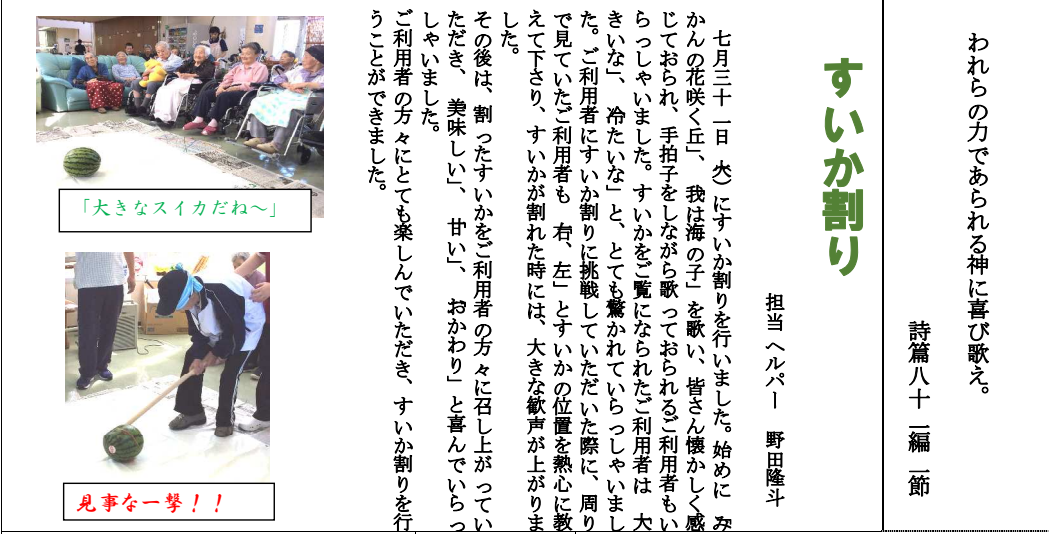 われらの力であられる神に喜び歌え。
詩篇八十一編一節
すいか割り
担当ヘルパー 野田隆斗
七月三十一日(火)にすいか割りを行いました。始めに「み
かんの花咲く丘」、「我は海の子」を歌い、皆さん懐かしく感
じておられ、手拍子をしながら歌っておられるご利用者もい
らっしゃいました。すいかをご覧になられたご利用者は「大
きいな」、「冷たいな」と、とても驚かれていらっしゃいまし
た。ご利用者にすいか割りに挑戦していただいた際に、周り
で見ていたご利用者も「右、左」とすいかの位置を熱心に教
えて下さり、すいかが割れた時には、大きな歓声が上がりま
した。
その後は、割ったすいかをご利用者の方々に召し上がってい
ただき、「美味しい」、「甘い」、「おかわり」と喜んでいらっ
しゃいました。
ご利用者の方々にとても楽しんでいただき、すいか割りを行
うことができました。
「大きなスイカだね～」
見事な一撃！！